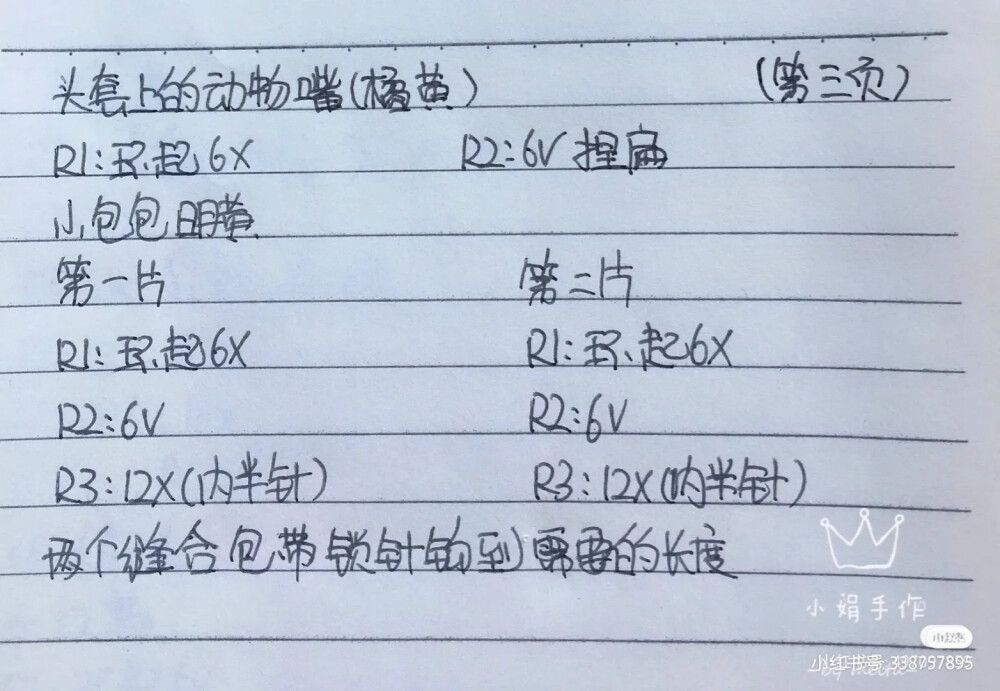 头套上的动物嘴(橘黄) (第三页)
R1:环起6X R2:6V 捏扁
小包包明黄
第一片 第二片
R1:环起6X R1:环起6X
R2:6V R2:6V
R3:12X(内半针) R3:12X(内半针)
两个缝合包带锁针钩到需要的长度
小娟手作
小红书
小红书号 338797895